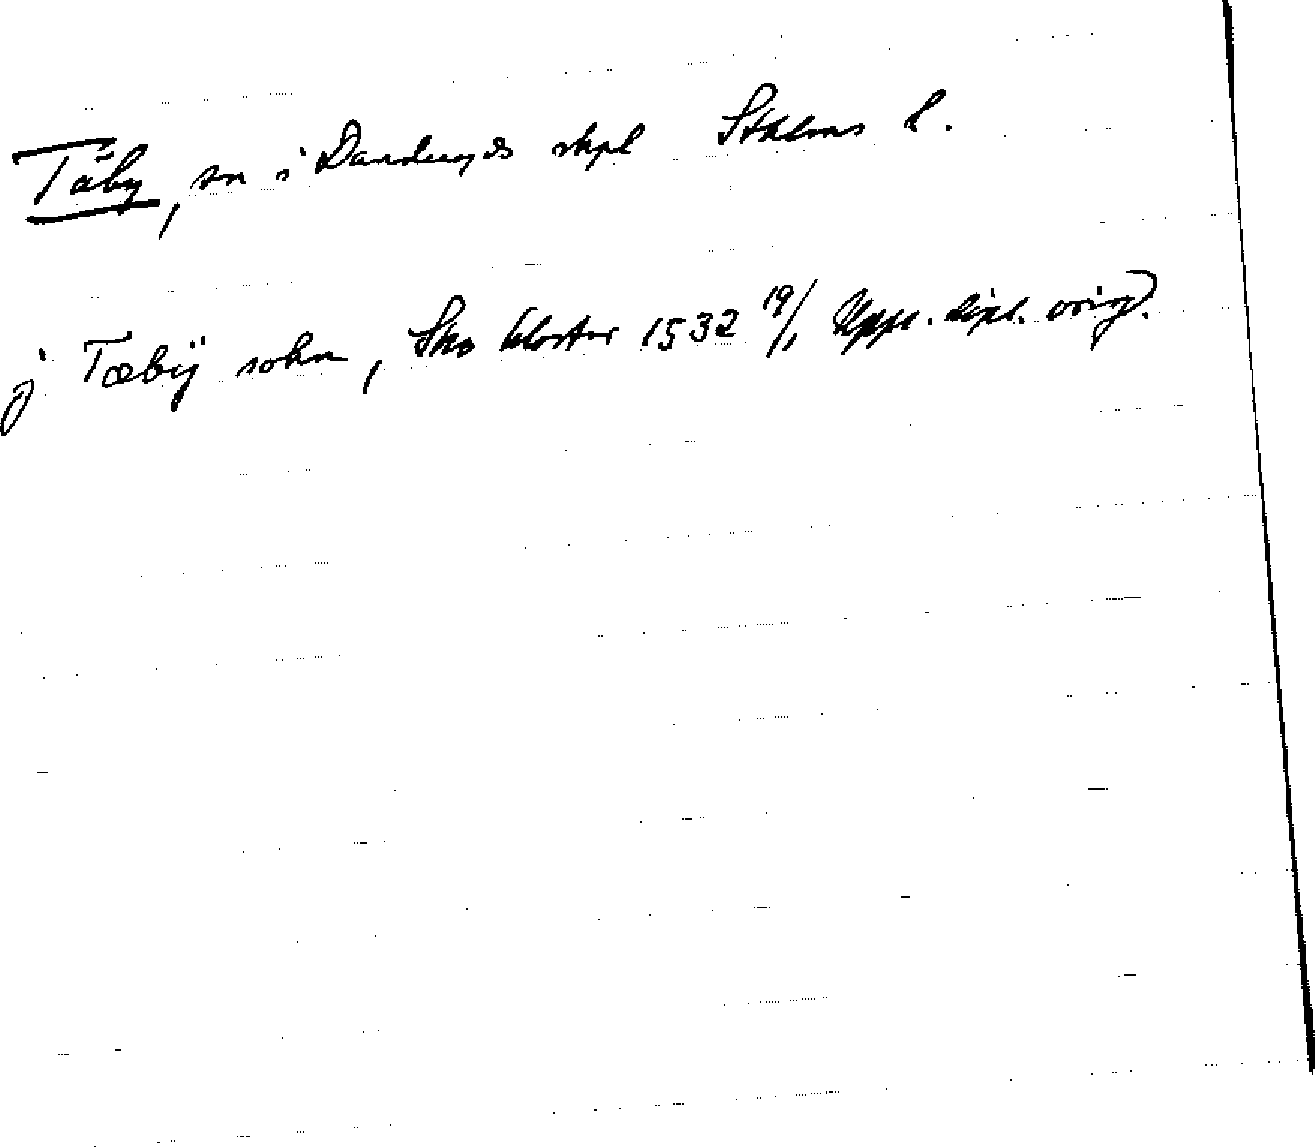 Täby, sn i Danderyds skpl Sthlms l.
j Tæbÿ sokn, Sko kloster 1532 19/1 Uppl. dipl. orig.